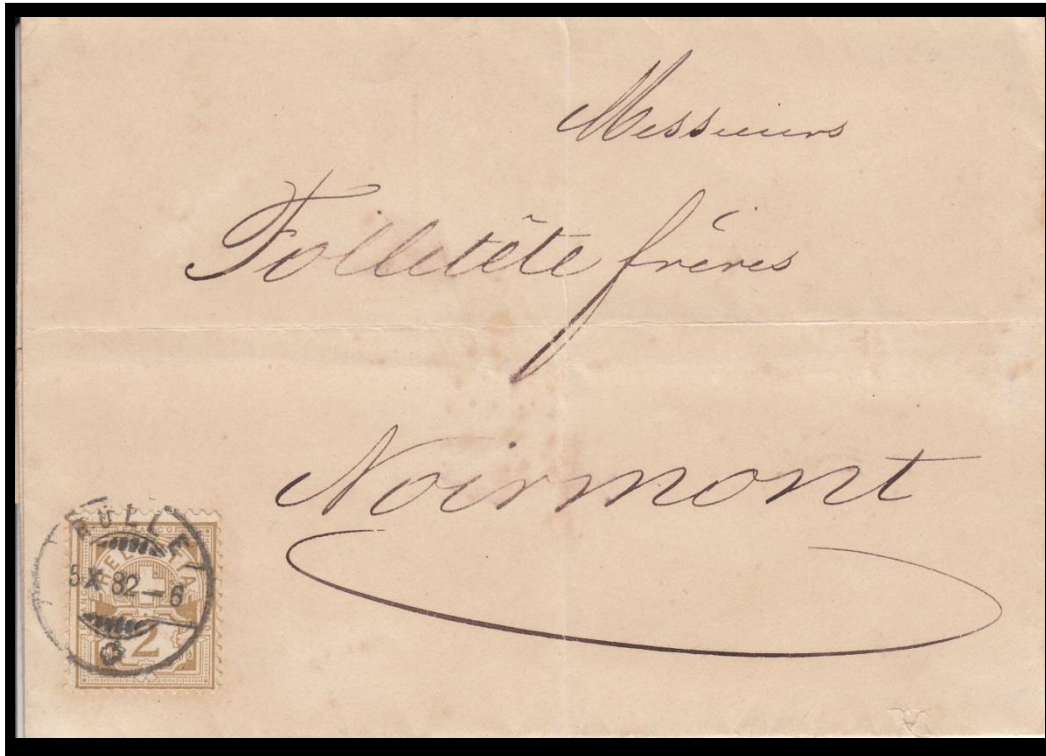 Messieurs
Folletête frères
Noirmont
BULLE
5 X 82 – 6
HELVETIA
2